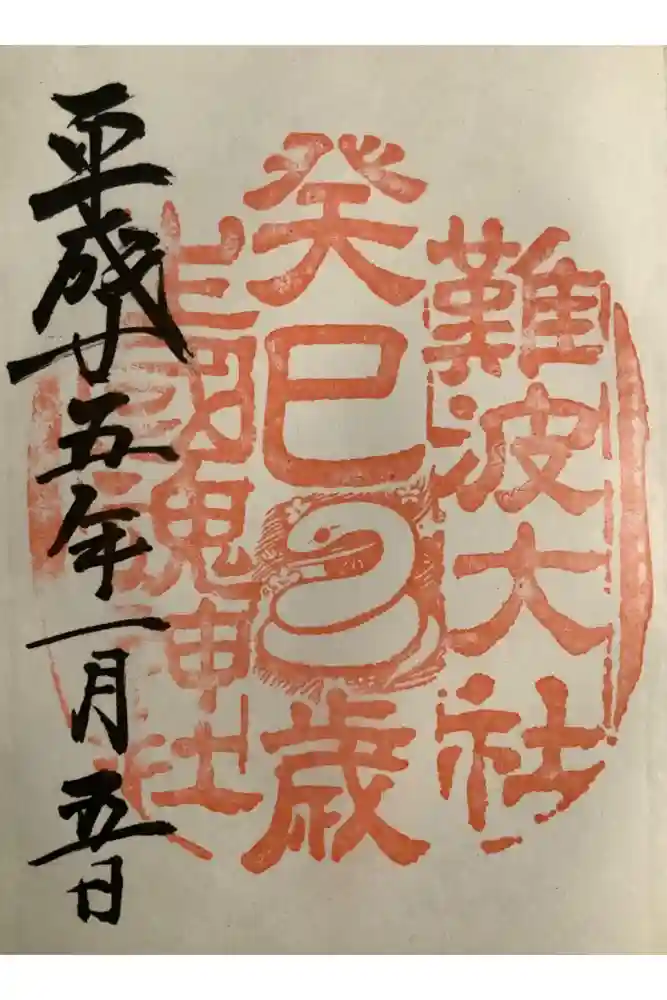 難波大社
癸巳歳
生國魂神社
平成廿五年一月五日